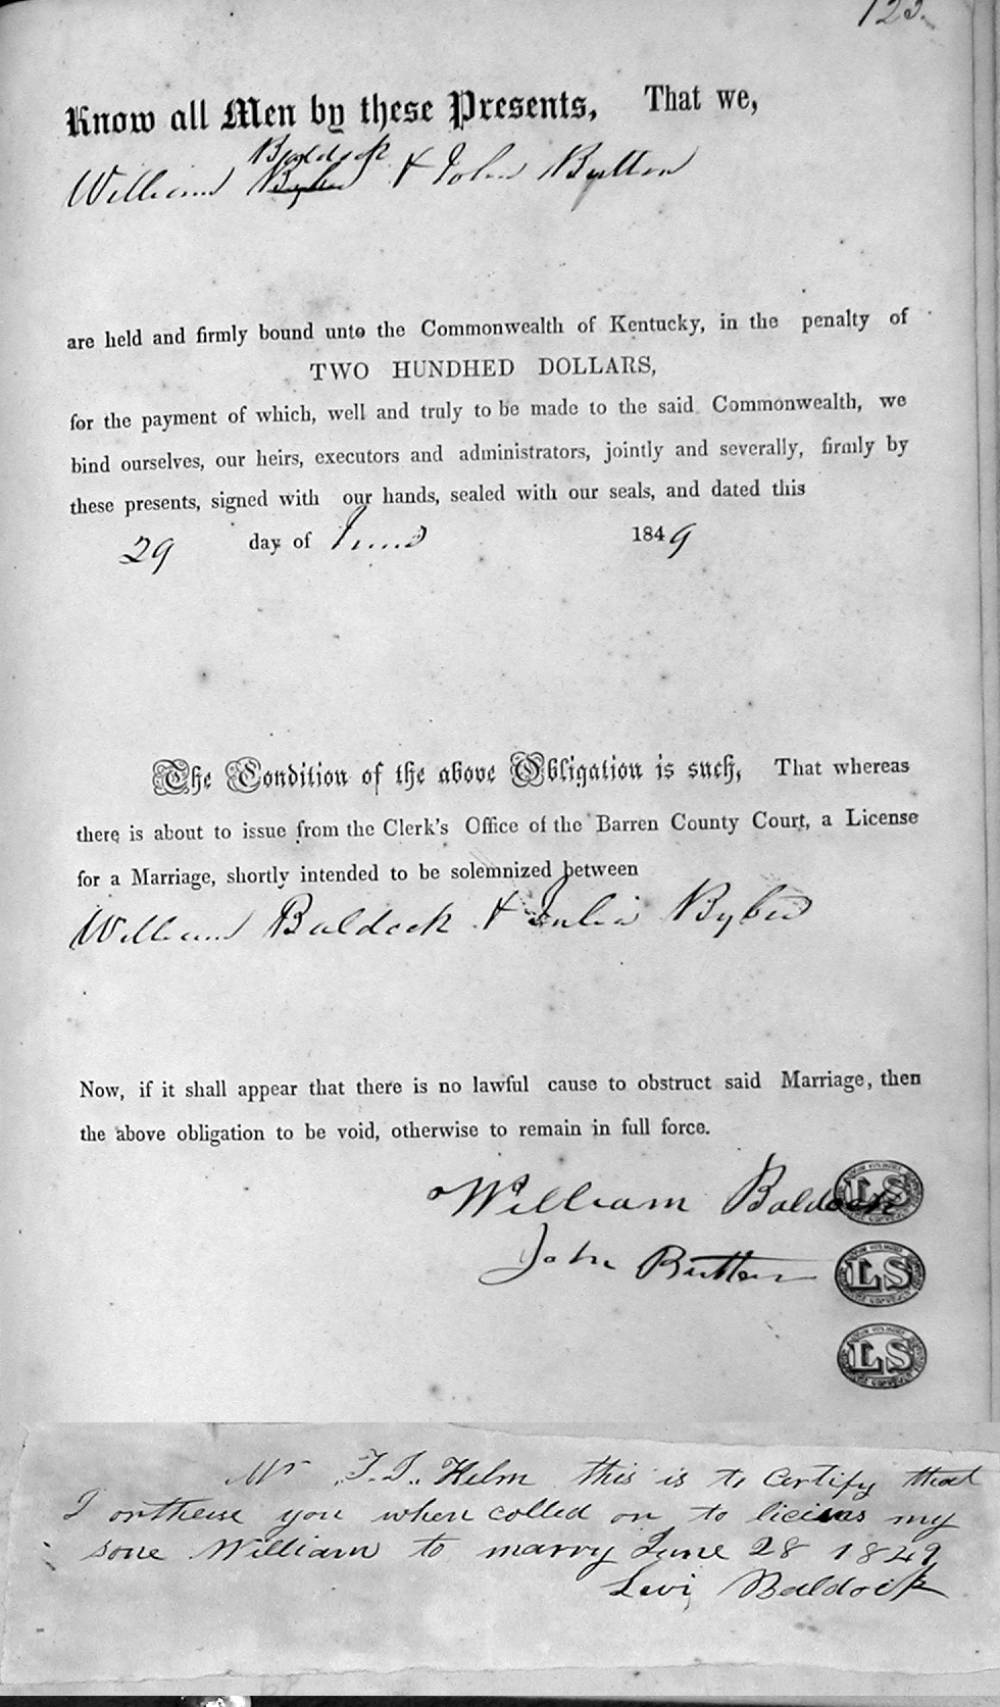 123.
Know all Men by these Presents, That we,
Baldock
William Bybee & John Button
are held and firmly bound unto the Commonwealth of Kentucky, in the penalty of
TWO HUNDHED DOLLARS,
for the payment of which, well and truly to be made to the said Commonwealth, we
bind ourselves, our heirs, executors and administrators, jointly and severally, firmly by
these presents, signed with our hands, sealed with our seals, and dated this
29 day of June 1849
The Condition of the above Obligation is such, That whereas
there is about to issue from the Clerk's Office of the Barren County Court, a License
for a Marriage, shortly intended to be solemnized between
William Baldock & Julia Bybee
Now, if it shall appear that there is no lawful cause to obstruct said Marriage, then
the above obligation to be void, otherwise to remain in full force.
William Baldock LS
John Button LS
LS
Mr T.J. Helm this is to Certify that
I ortherise you when colled on to liceins my
sone William to marry June 28 1849
Levi Baldock